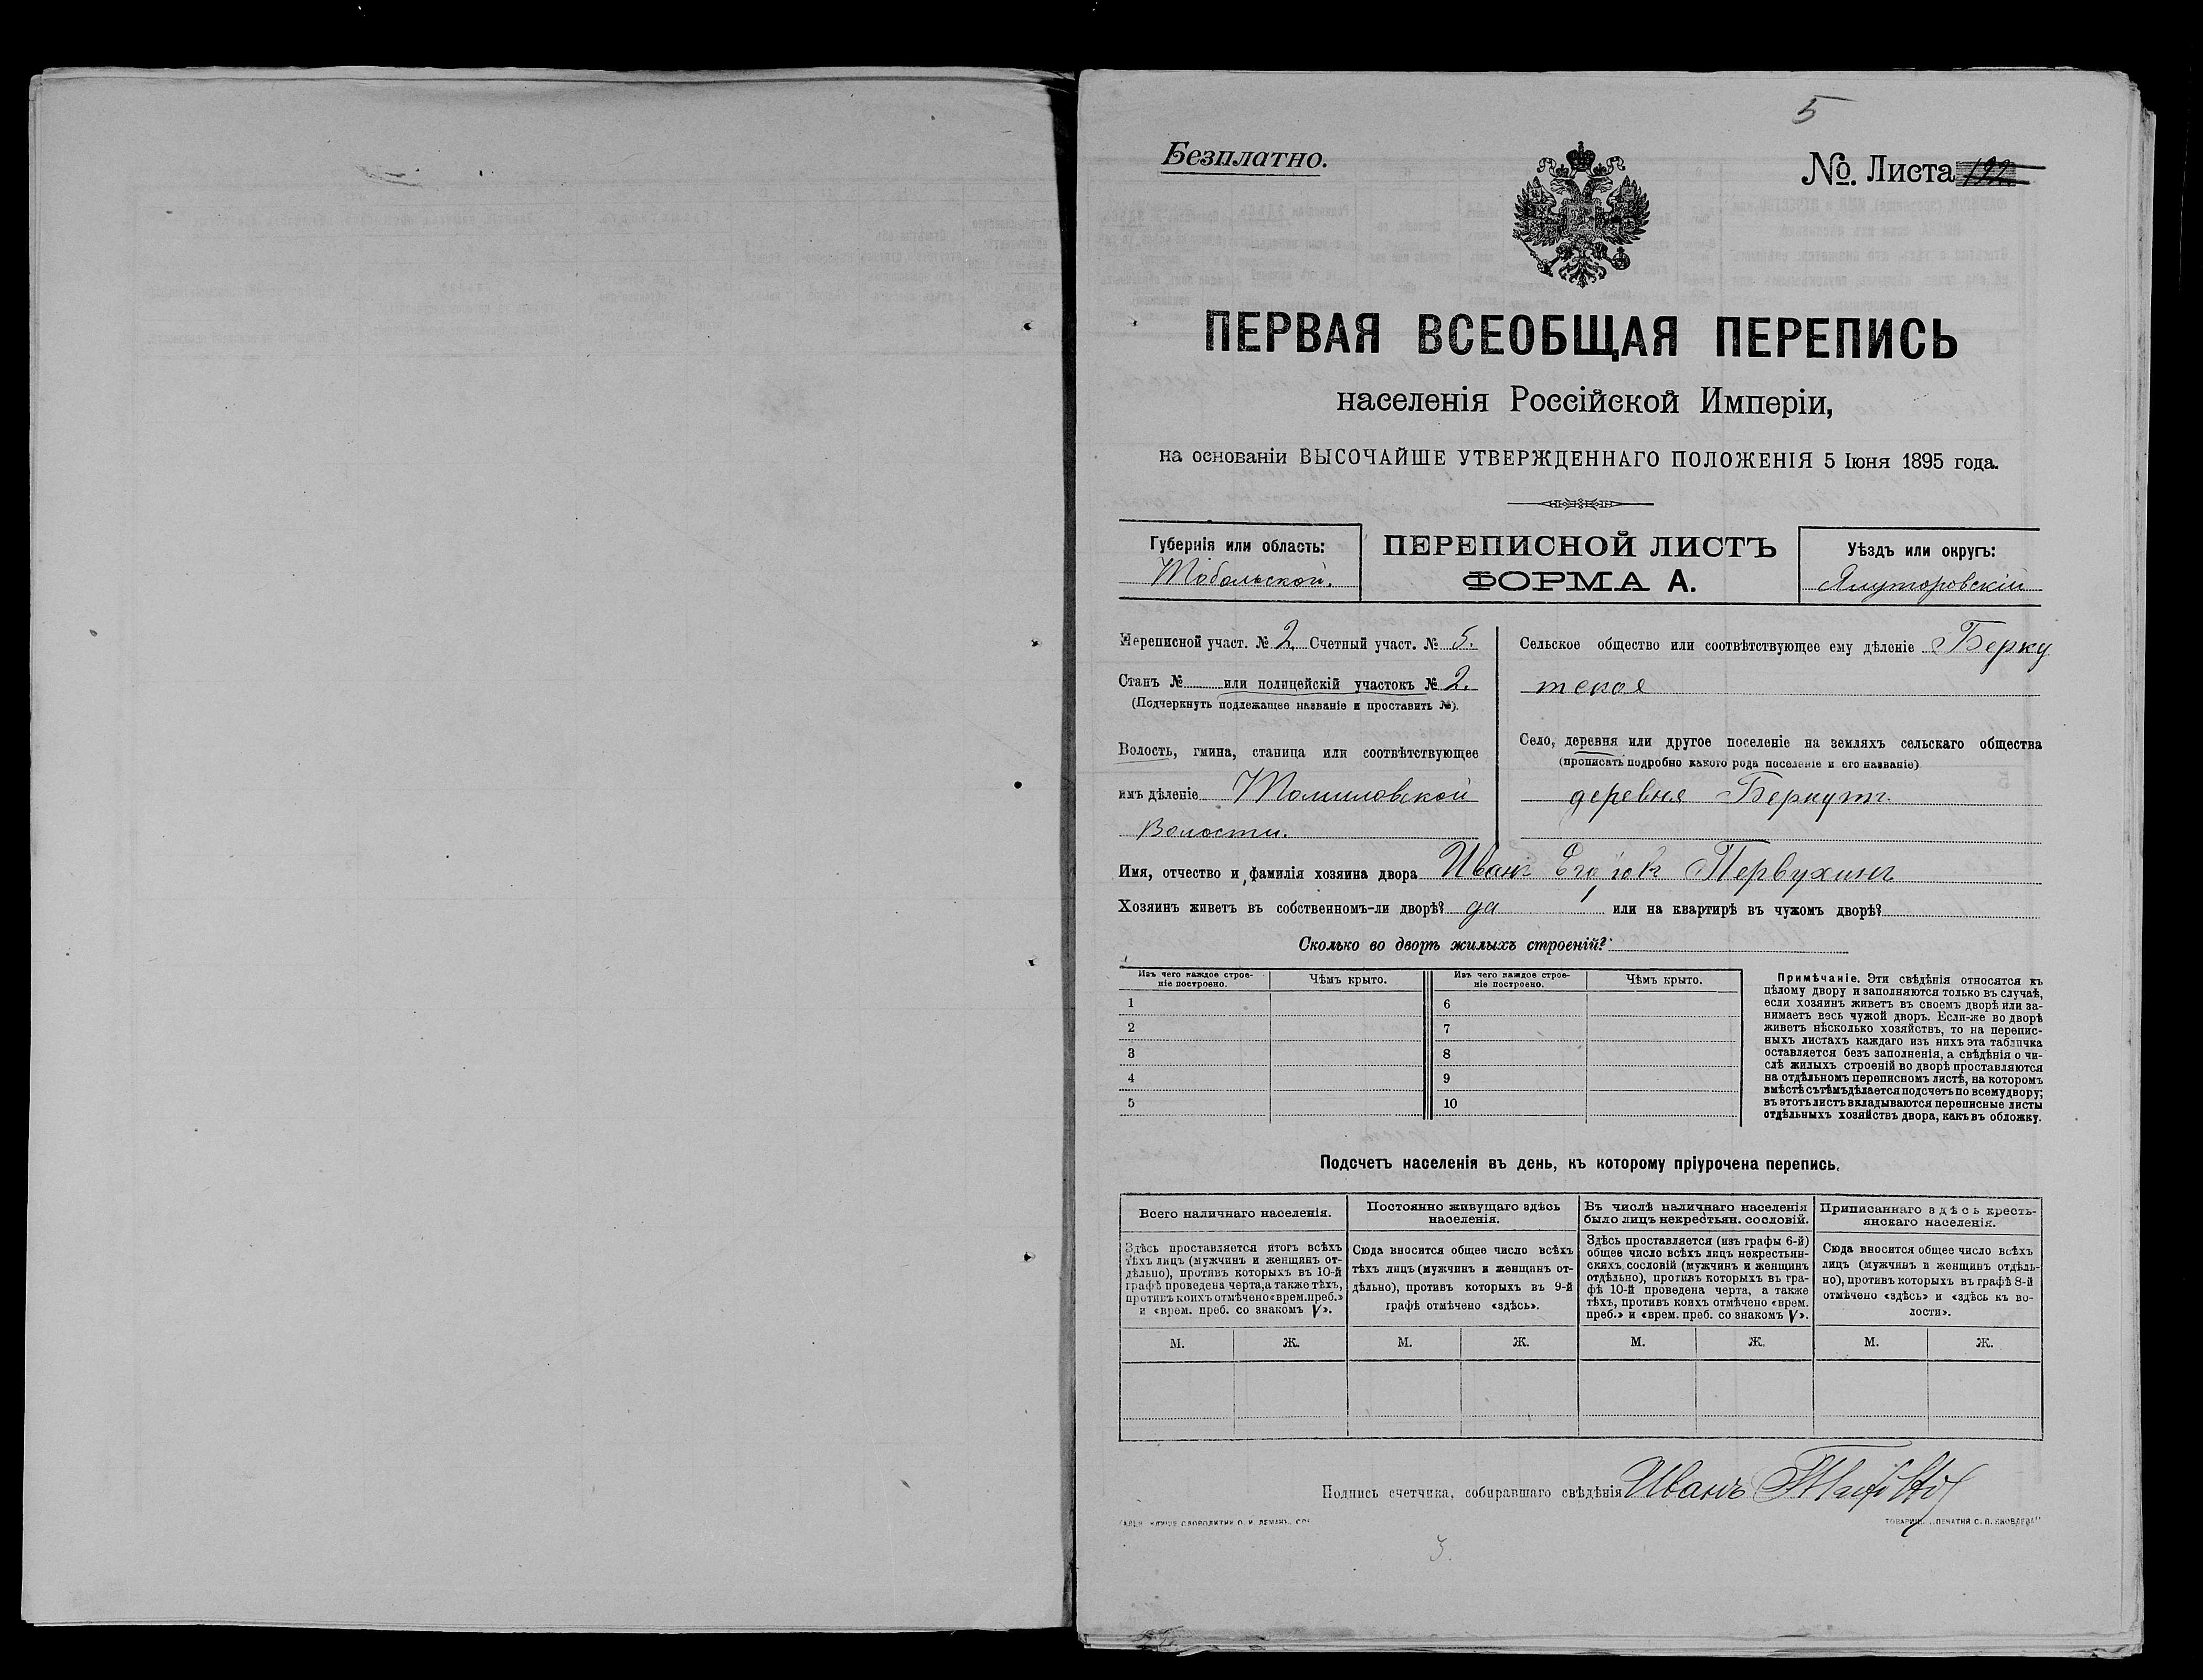 5
Безплатно.
№. Листа 192
ПЕРВАЯ ВСЕОБЩАЯ ПЕРЕПИСЬ
населенія Россійской Имперіи,
на основаніи ВЫСОЧАЙШЕ УТВЕРЖДЕННАГО ПОЛОЖЕНІЯ 5 Іюня 1895 года.
Губернія или область:
Тобольской.
ПЕРЕПИСНОЙ ЛИСТЪ
ФОРМА А.
Уѣздъ или округъ:
Ялуторовскій
Переписной участ. № 2. Счетный участ. № 5.
Станъ № или полицейскій участокъ № 2.
(Подчеркнуть подлежащее названіе и проставить №).
Волость, гмина, станица или соотвѣтствующее
имъ дѣленіе Томиловской
Волости.
Сельское общество или соотвѣтствующее ему дѣленіе Берку
тское
Село, деревня или другое поселеніе на земляхъ сельскаго общества
(прописать подробно какого рода поселеніе и его названіе)
деревня Беркутъ.
Имя, отчество и фамилія хозяина двора Иванъ Егоровъ Первухинъ
Хозяинъ живетъ въ собственномъ-ли дворѣ? да или на квартирѣ въ чужомъ дворѣ?
Сколько во дворѣ жилыхъ строеній?
Изъ чего каждое строе-
ніе построено.
Чѣмъ крыто.
Изъ чего каждое строе-
ніе построено.
Чѣмъ крыто.
1 6
2 7
3 8
4 9
5 10
Примѣчаніе. Эти свѣдѣнія относятся къ
цѣлому двору и заполняются только въ случаѣ,
если хозяинъ живетъ въ своемъ дворѣ или за-
нимаетъ весь чужой дворъ. Если-же во дворѣ
живетъ нѣсколько хозяйствъ, то на перепис-
ныхъ листахъ каждаго изъ нихъ эта табличка
оставляется безъ заполненія, а свѣдѣнія о чи-
слѣ жилыхъ строеній во дворѣ проставляются
на отдѣльномъ переписномъ листѣ, на которомъ
вмѣстѣ съ тѣмъ дѣлается подсчетъ по всему двору;
въ этотъ листъ вкладываются переписные листы
отдѣльныхъ хозяйствъ двора, какъ въ обложку.
Подсчетъ населенія въ день, къ которому пріурочена перепись.
Всего наличнаго населенія.
Здѣсь проставляется итогъ всѣхъ
тѣхъ лицъ (мужчинъ и женщинъ от-
дѣльно), противъ которыхъ въ 10-й
графѣ проведена черта, а также тѣхъ,
противъ коихъ отмѣчено «врем. преб.»
и «врем. преб. со знакомъ V».
М. Ж.
Постоянно живущаго здѣсь
населенія.
Сюда вносится общее число всѣхъ
тѣхъ лицъ (мужчинъ и женщинъ от-
дѣльно), противъ которыхъ въ 9-й
графѣ отмѣчено «здѣсь».
М. Ж.
Въ числѣ наличнаго населенія
было лицъ некрестьян. сословій.
Здѣсь проставляется (изъ графы 6-й)
общее число всѣхъ лицъ некрестьян-
скихъ сословій (мужчинъ и женщинъ
отдѣльно), противъ которыхъ въ гра-
фѣ 10-й проведена черта, а также
тѣхъ, противъ коихъ отмѣчено «врем.
преб.» и «врем. преб. со знакомъ V».
М. Ж.
Приписаннаго здѣсь кресть-
янскаго населенія.
Сюда вносится общее число всѣхъ
лицъ (мужчинъ и женщинъ отдѣль-
но), противъ которыхъ въ графѣ 8-й
отмѣчено «здѣсь» и «здѣсь къ во-
лости».
М. Ж.
Подпись счетчика, собиравшаго свѣдѣнія Иванъ
ТОВАРИЩ. „ПЕЧАТНЯ С. П. ЯКОВЛЕВА"